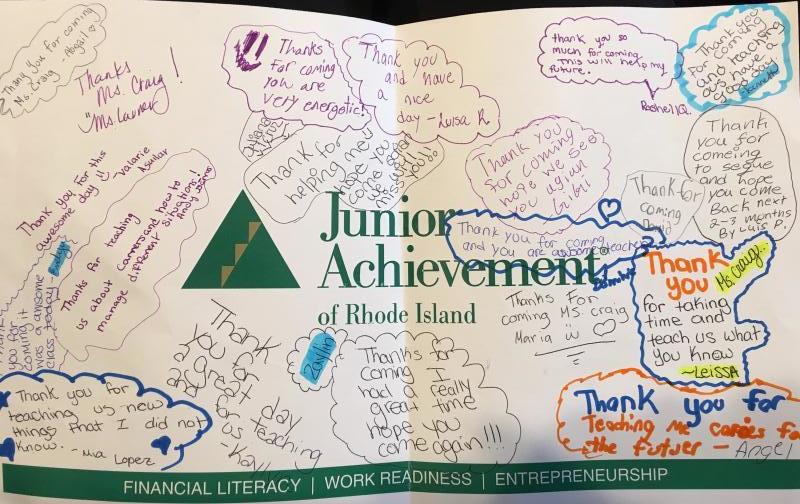 Thank you for coming
Ms. Craig - Abigail
Thanks
Ms. Craig!
"Ms. Lawney
Thanks
for coming
you are
very energetic!
Thank you
and have
a nice
day - Luisa R.
thank you so
much for coming.
This will help my
future.
Rachell Q.
Thank you
for coming
and teaching
ous have a
good day
- Kenneth
Thank for
helping me
hope you
come
miss you!!
Thank you
for coming
hope we see
you agian
bi bi
Thank for
coming
David
Thank
you for
comeing
to segue
and hope
you come
Back next
2-3 months
By Luis P.
Thank you for this
awesome day
Valarie
Thanks for teaching
us about careers and how to
manage different situations!
Thank
you for
coming it
was a awsome
class today -
Junior
Achievement
of Rhode Island
Thank you for coming
and you are awsome teacher
Thanks For
coming MS. craig
Maria
Thank
you
Ms. Craig..
for taking
time and
teach us what
you know
~LeissA
Thank
you for
a great day
and for
us teaching
Zaylin
Thanks for
coming I
had a really
great time
hope you
come again!!!
Thank you for
teaching us new
things that I did not
know. - Mia Lopez
Thank you for
Teaching me carees for
the futuer - Angel
FINANCIAL LITERACY | WORK READINESS | ENTREPRENEURSHIP